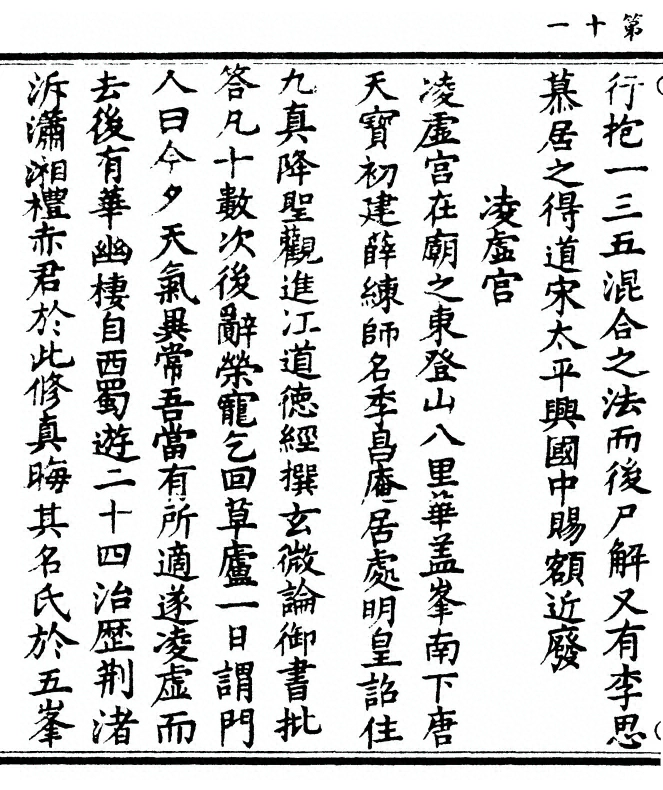 第十一
行抱一三五混合之法而後尸解又有李思
慕居之得道宋太平興國中賜額近廢
凌虛宫
凌虛宫在廟之東登山八里華盖峯南下唐
天寶初建薛練師名季昌庵居處明皇詔住
九真降聖觀進注道德經撰玄微論御書批
答凡十數次後辭榮寵乞回草廬一日謂門
人曰今夕天氣異常吾當有所適遂凌虛而
去後有華幽棲自西蜀遊二十四治歷荆渚
泝瀟湘禮赤君於此修真晦其名氏於五峯